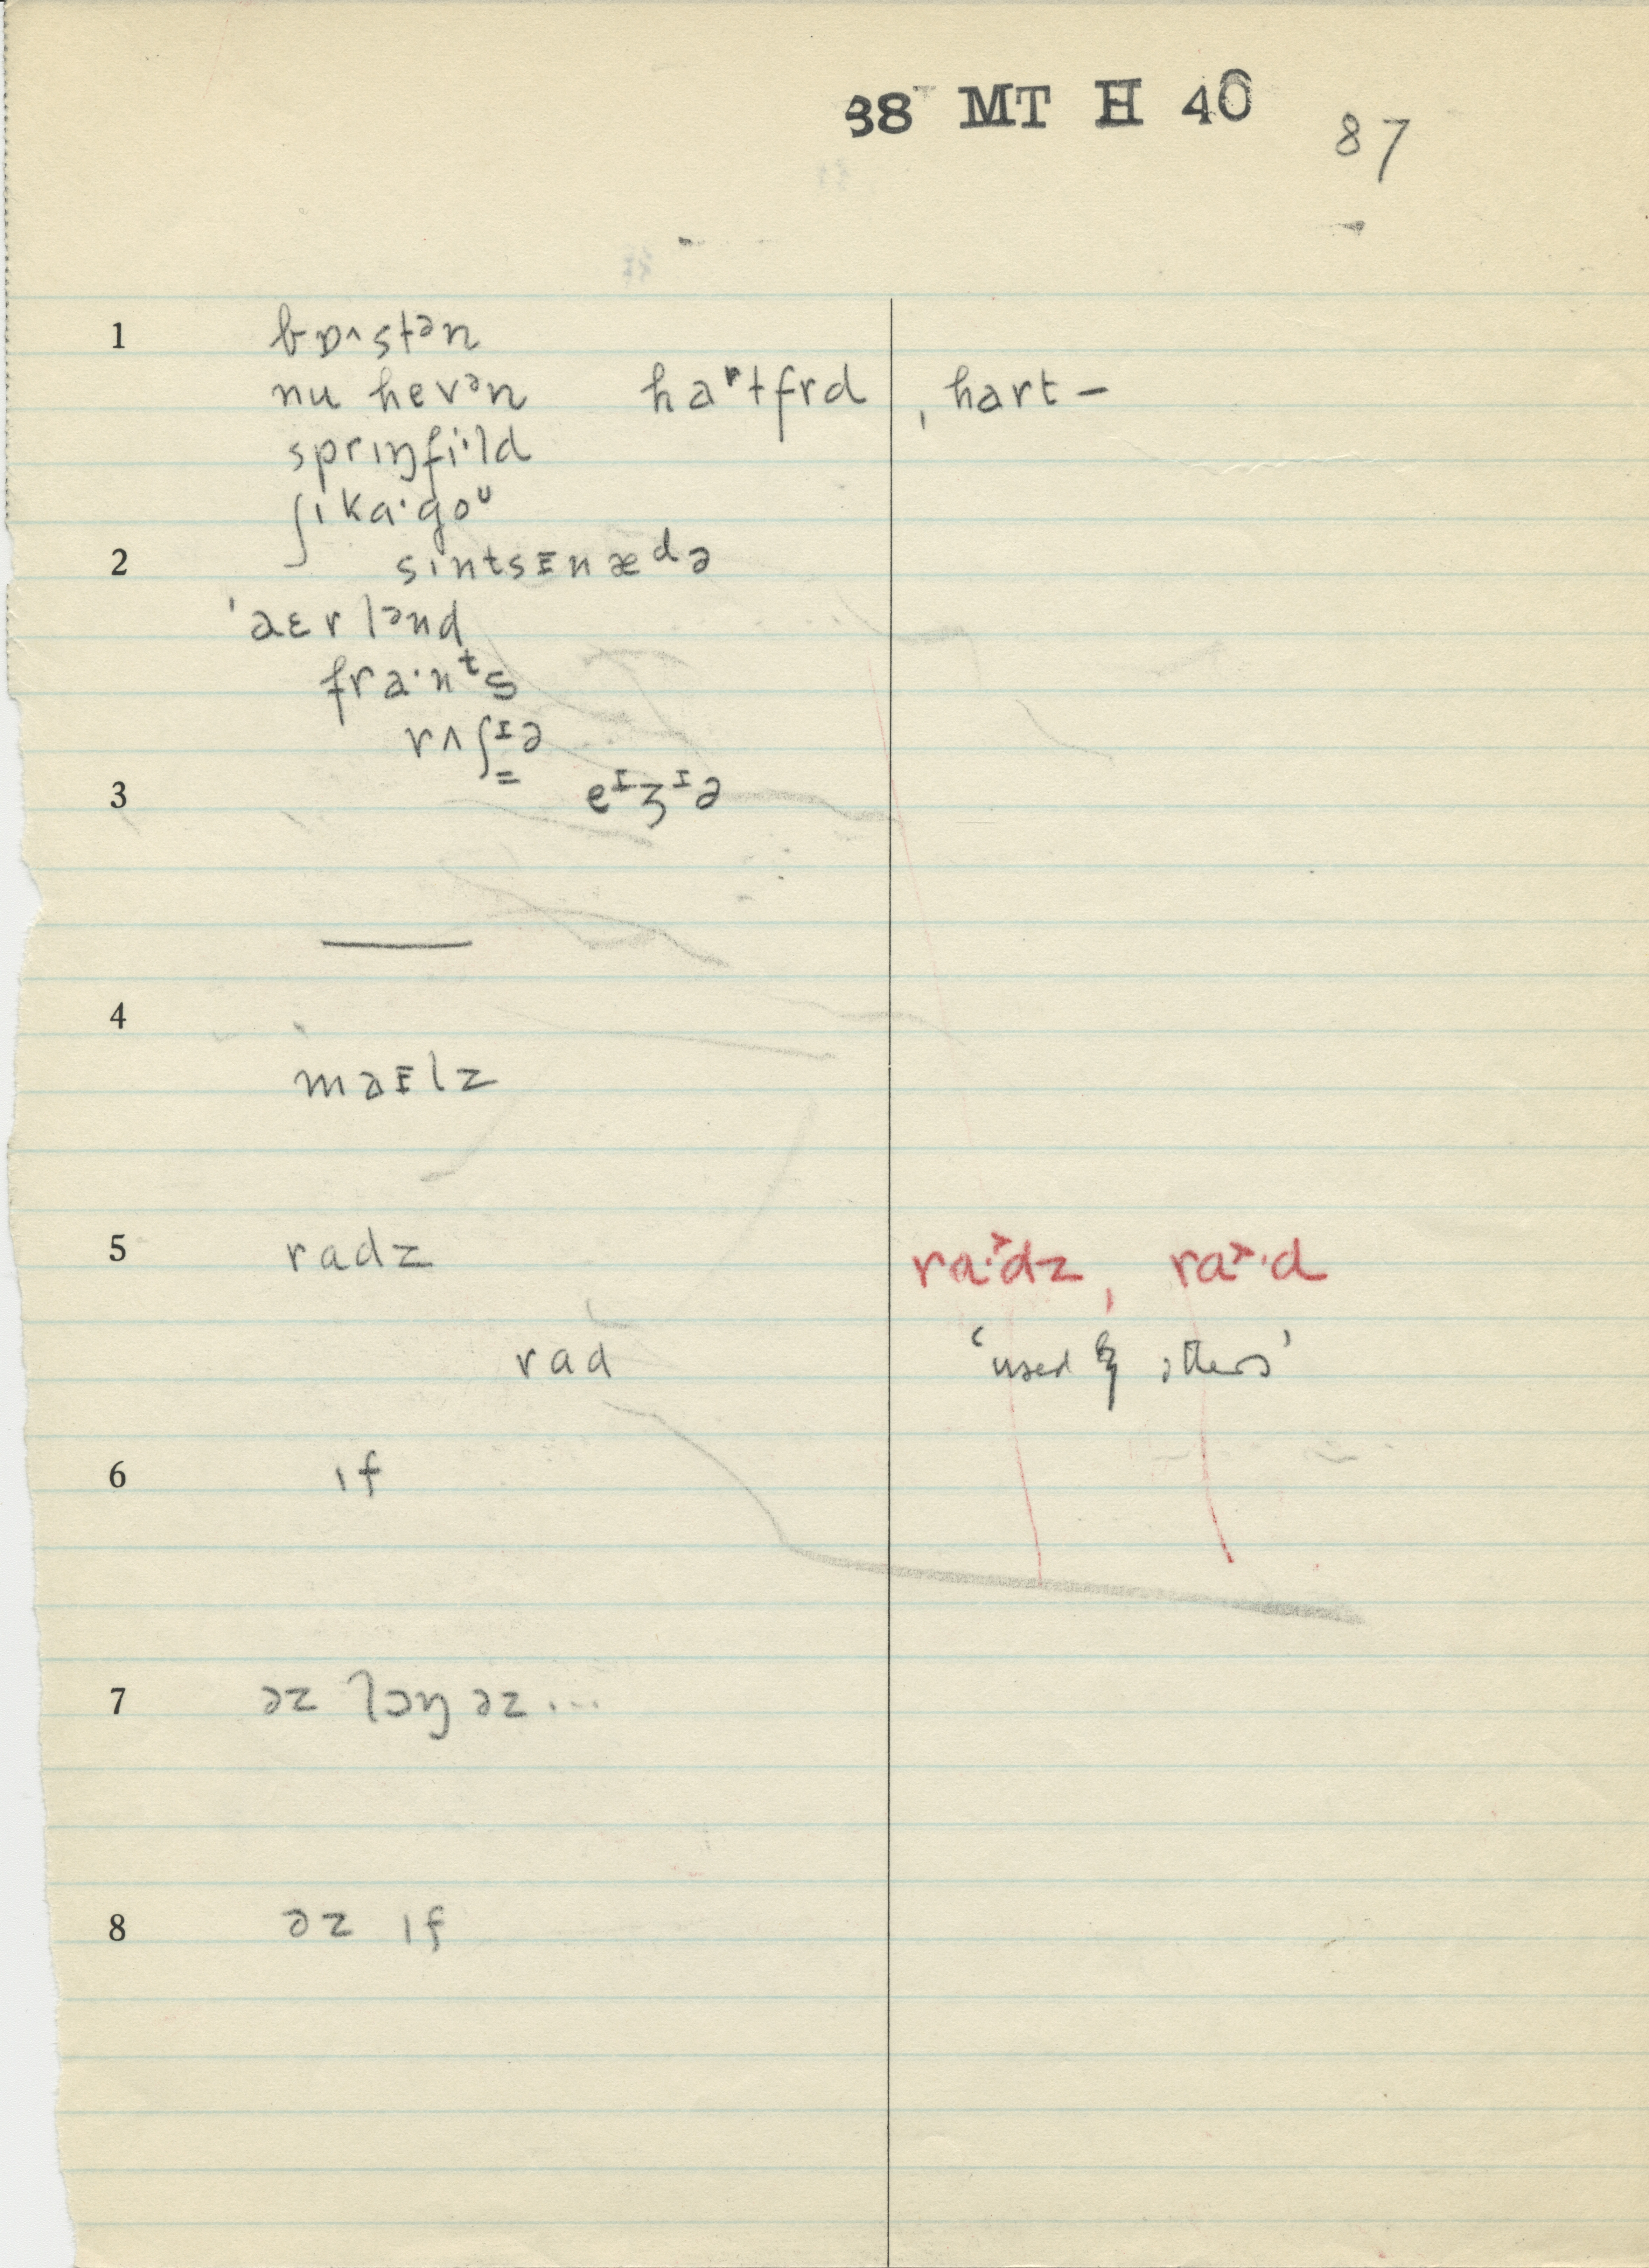 38 MT H 40 87
1 bɒ^stᵊn
nu hevᵊn haʳtfrd , hart –
sprɪŋfi·ld
ʃɪka·goᵁ
2 sɪntsɪnæᵈə
'aɛrlᵊnd
fra·nᵗs
rʌʃᴵə
3 eᴵʒᴵə
4
maɪlz
5 radz ra·˃dz, ra˃·d
rad 'used by others'
6 ɪf
7 əz lɔŋ əz ...
8 əz ɪf